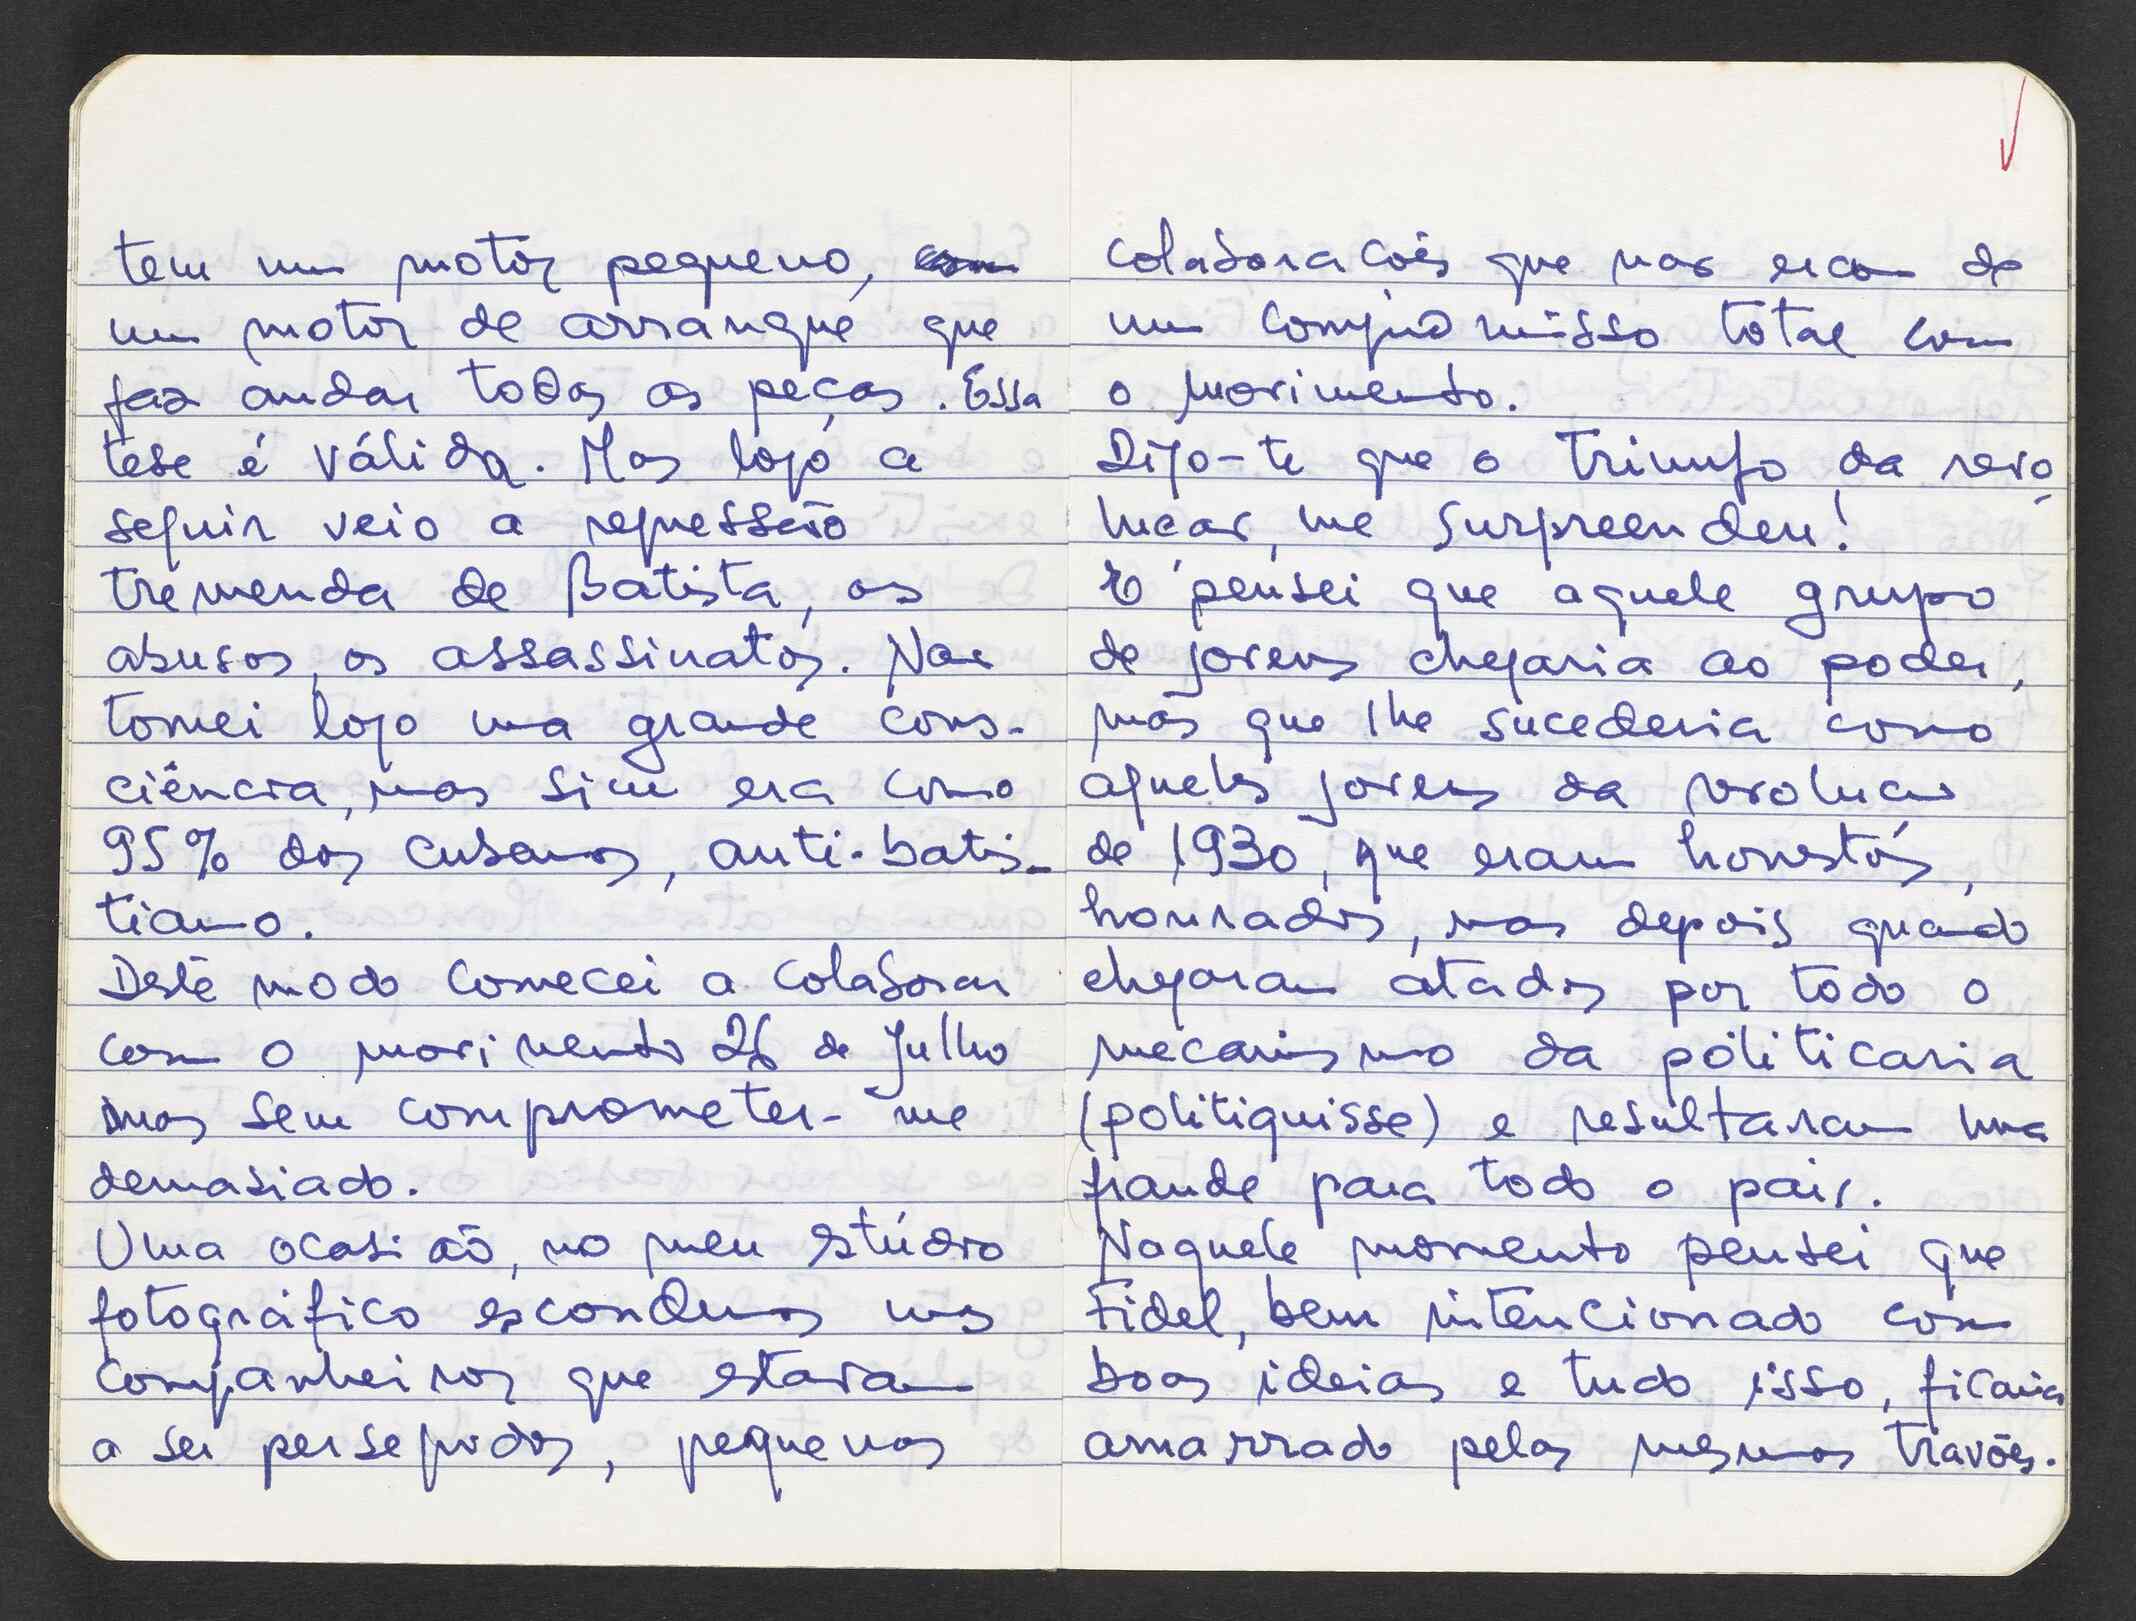 tem um motor pequeno,
um motor de arranque que
faz andar todas as peças. Essa
tese é válida. Mas logo a
seguir veio a repressão
tremenda de Batista, os
abusos, os assassinatos. Não
tomei logo uma grande cons-
ciência, mas sim era como
95% dos cubanos, anti-batis-
tiano.
Deste modo comecei a colaborar
com o movimento 26 de Julho
mas sem comprometer-me
demasiado.
Uma ocasião, no meu estúdio
fotográfico escondemos uns
companheiros que estavam
a ser perseguidos, pequenas
colaborações que não eram de
um compromisso total com
o movimento.
Digo-te que o triunfo da revo
lucao, me surpreendeu!
E pensei que aquele grupo
de jovens chegaria ao poder,
mas que lhe sucederia como
aqueles jovens da revolucao
de 1930, que eram honestos,
honrados, mas depois quando
chegaram atados por todo o
mecanismo da politicaria
(politiquisse) e resultaram uma
fraude para todo o pais.
Naquele momento pensei que
Fidel, bem intencionado com
boas ideias e tudo isso, ficaria
amarrado pelos mesmos travões.